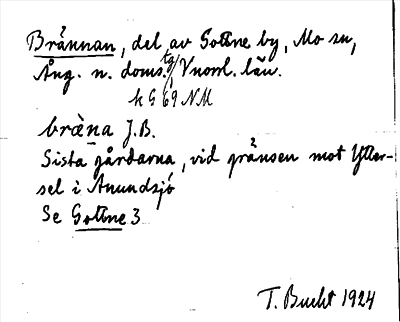 Brännan, del av Gottne by, Mo sn,
Ång. n. doms. tg/ Vnorrl. län.
k G 69 NM
bræ̀na J.B.
Sista gårdarna, vid gränsen mot Ytter-
sel i Anundsjö
Se Gottne 3
T. Bucht 1924